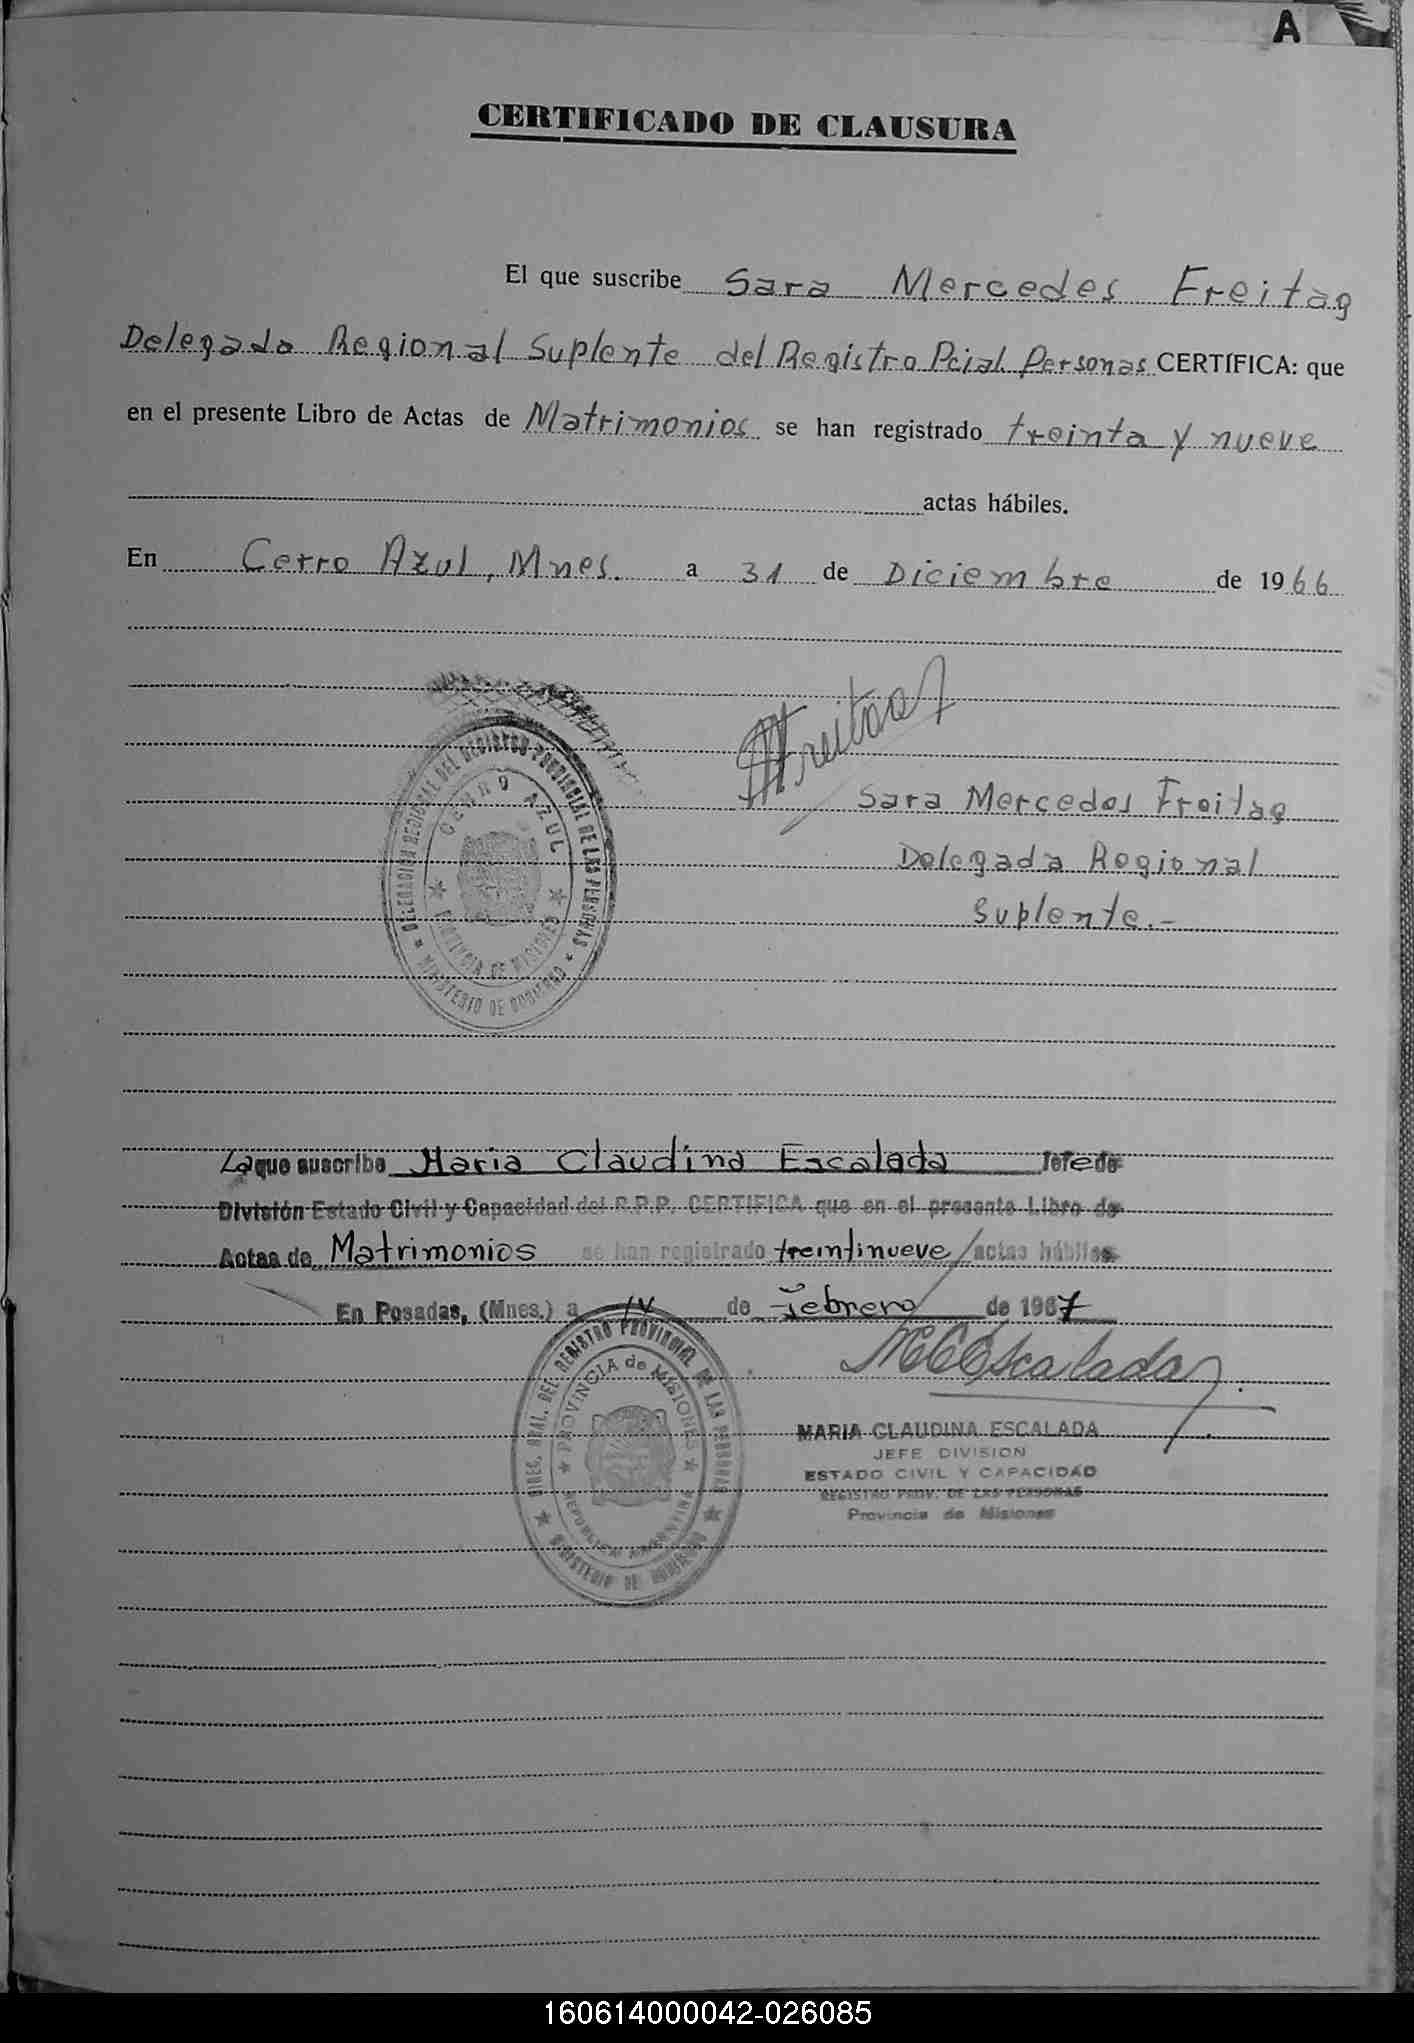 A
CERTIFICADO DE CLAUSURA
El que suscribe Sara Mercedes Freitag
Delegada Regional Suplente del Registro Pcial Personas CERTIFICA: que
en el presente Libro de Actas de Matrimonios se han registrado treinta y nueve
actas hábiles.
En Cerro Azul, Mnes. a 31 de Diciembre de 1966
SFreitag
Sara Mercedes Freitag
Delegada Regional
Suplente.-
DELEGACION REGIONAL DEL REGISTRO PROVINCIAL DE LAS PERSONAS
CERRO AZUL
PROVINCIA DE MISIONES
MINISTERIO DE GOBIERNO
La que suscribe Maria Claudina Escalada Jefe de
División Estado Civil y Capacidad del R.P.P. CERTIFICA que en el presente Libro de
Actas de Matrimonios se han registrado treintinueve / actas hábiles
En Posadas, (Mnes.) a de Febrero de 1967
MCEscalada
DIREC. GRAL. DEL REGISTRO PROVINCIAL DE LAS PERSONAS
PROVINCIA de MISIONES
REPUBLICA ARGENTINA
MINISTERIO DE GOBIERNO
MARIA CLAUDINA ESCALADA
JEFE DIVISION
ESTADO CIVIL Y CAPACIDAD
REGISTRO PROV. DE LAS PERSONAS
Provincia de Misiones
160614000042-026085